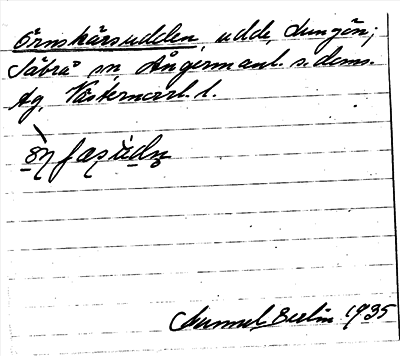 Örnskärsudden, udde, Lungön;
Säbrå sn, Ångermanl. s. doms.
lg, Västernorrl. l.
Samuel Berlin 1935